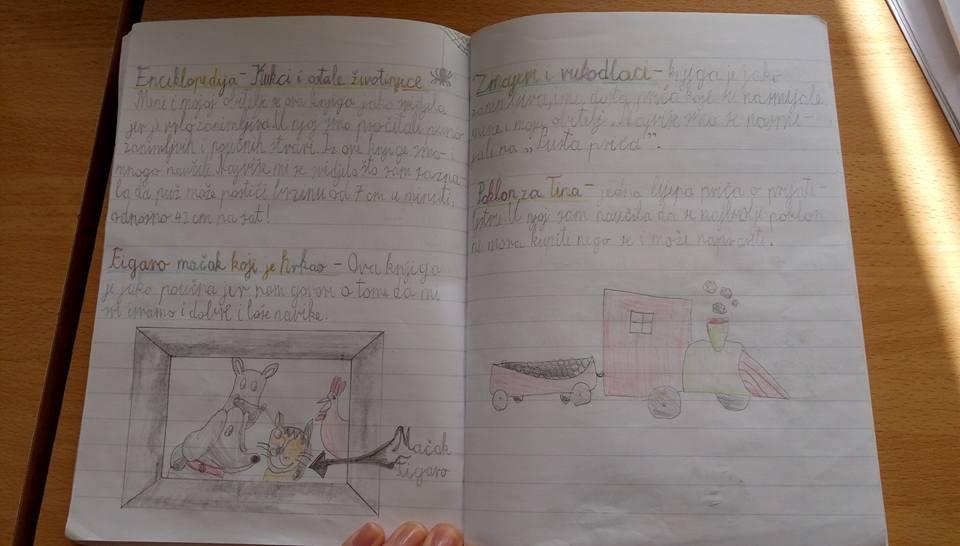 Enciklopedija - Kukci i ostale životinjice
Meni i mojoj obitelji se ova knjiga jako svidjela
jer je vrlo zanimljiva. U njoj smo pročitali puno
zanimljivih i poučnih stvari. Iz ove knjige smo i
mnogo naučili. Najviše mi se svidjelo što sam sazna-
la da puž može postići brzinu od 7 cm u minuti,
odnosno 42 cm na sat!
Figaro mačak koji je hrkao - Ova knjiga
je jako poučna jer nam govori o tome da mi
svi imamo i dobre i loše navike.
Mačak
Figaro
Zmajevi i vukodlaci - knjiga je jako
zanimljiva, ima dosta priča koje su nasmijale
mene i moju obitelj. Najviše smo se nasmi-
jali na „Pusta priča".
Poklon za Tina - jedna lijepa priča o prijate-
ljstvu. U njoj sam naučila da se najbolji poklon
ne mora kupiti nego se i može napraviti.